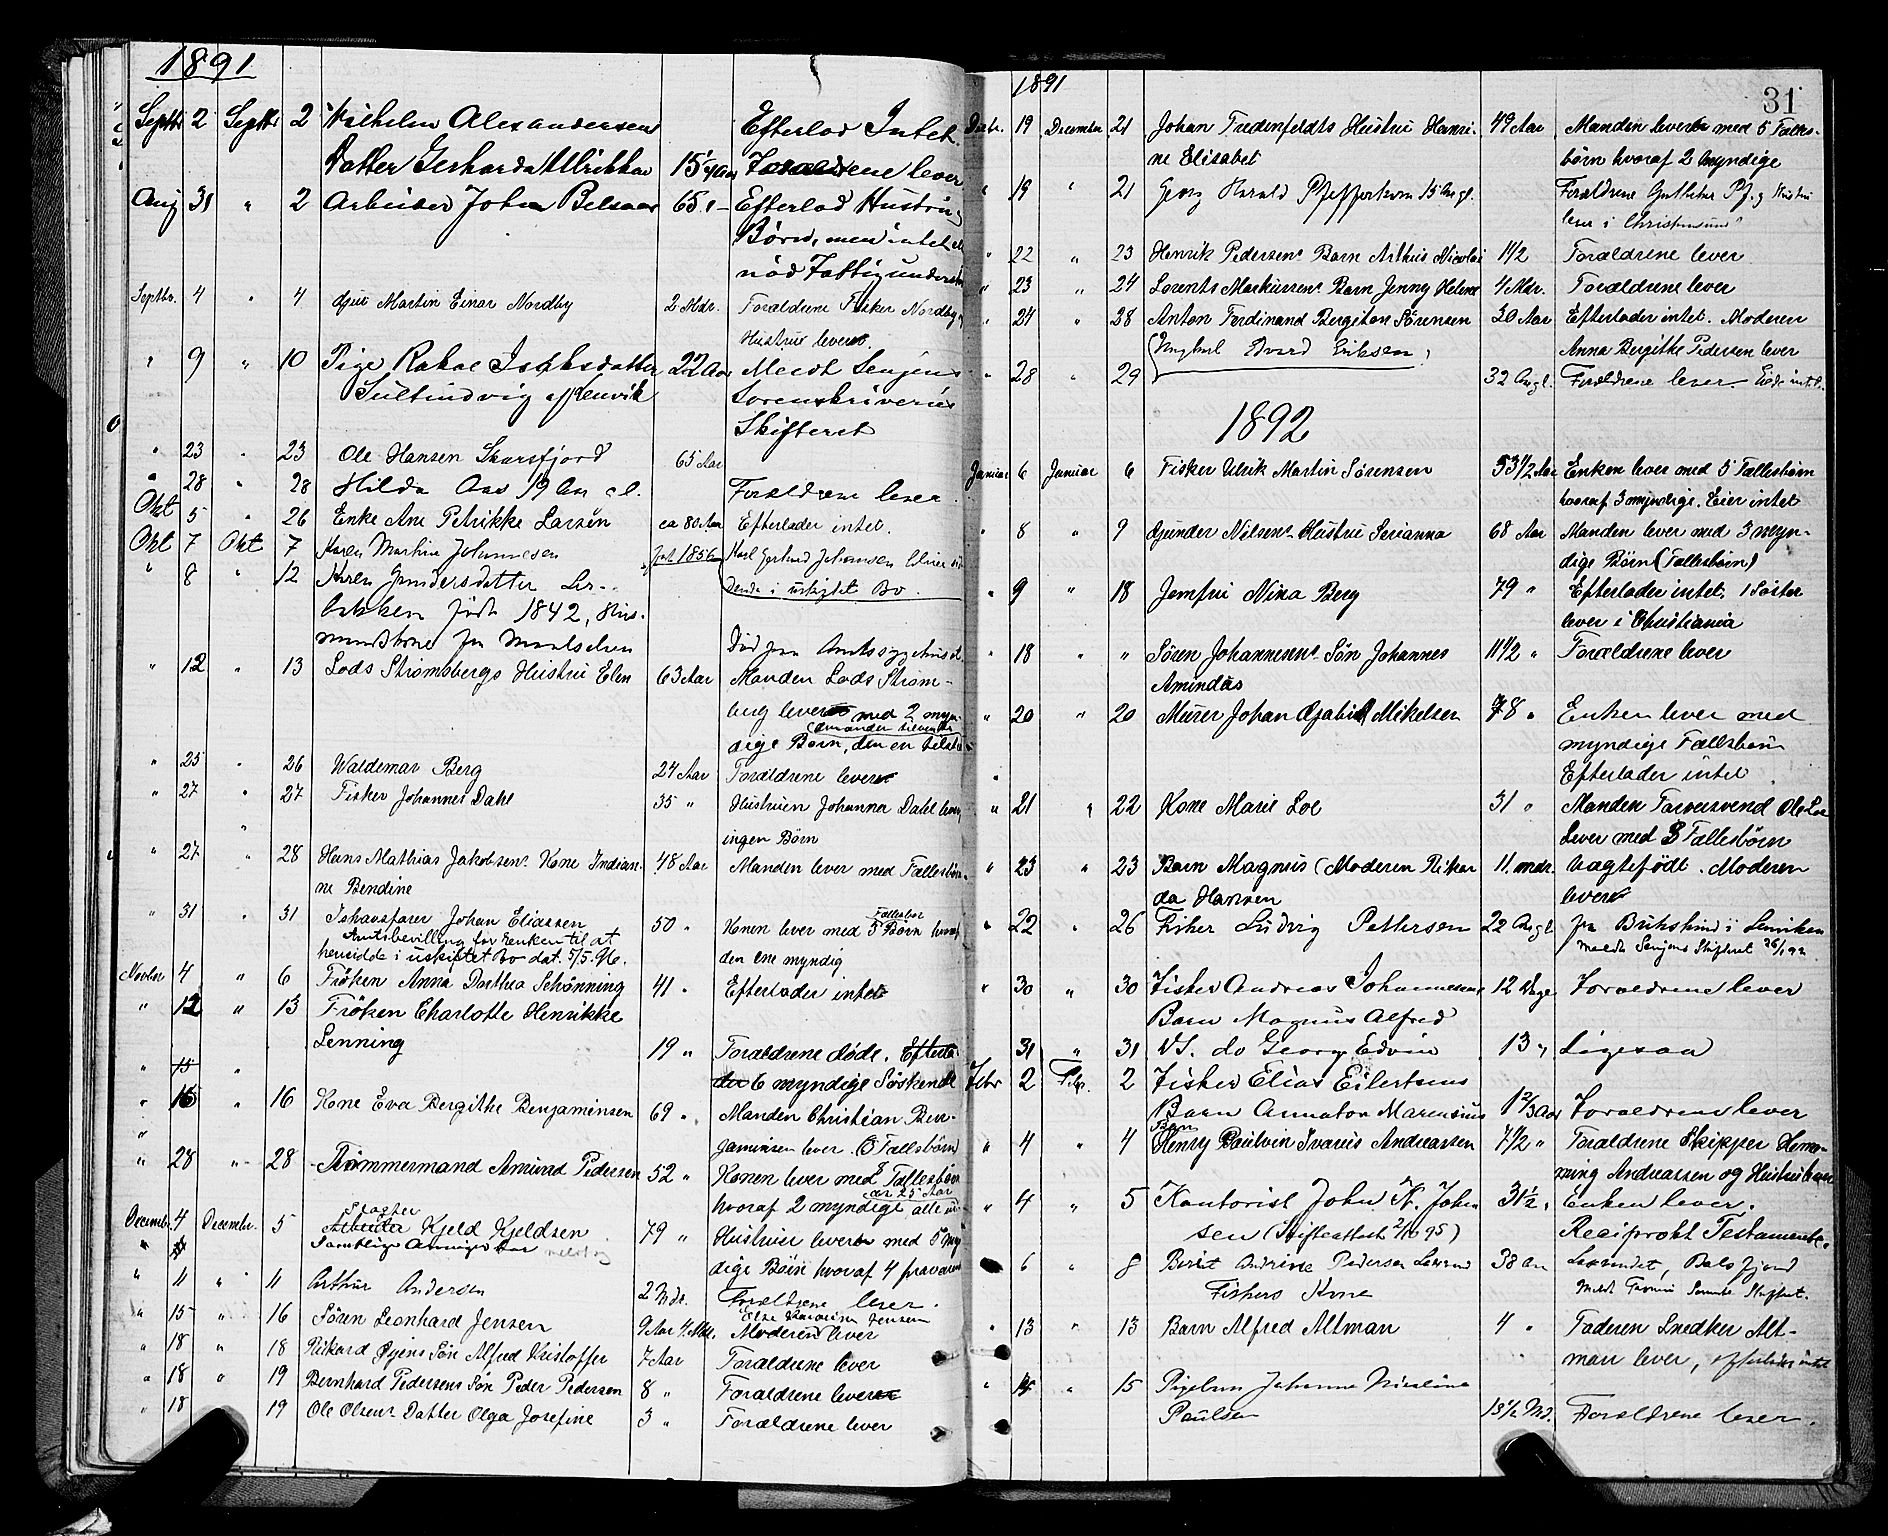 1891
Septbr 2 Septbr 2 Wilhelm Alexandersens Efterlod Intet.
Datter Gerharda Ullrikka 15 1/4 Aar Forældrene lever
Aug 31 " 2 Arbeider Johan 65 " Efterlod Hustru,
Børn, men intet
nød Fattigunderst
Septbr. 4 " 4 Martin Einar Nordby 2 Mdr. Forældrene Fisker Nordby og
Hustru lever
" 9 " 10 Pige Rakel 22 Aar Meldt Senjens
Sorenskriverie
Skifteret
" 23 " 23 Ole Hansen Skarsfjord 65 Aar
" 28 " 28 Hilda Aas 19 Aar gl. Forældrene lever
Okt 5 " 26 Enke Ane Petrikke Larsen ca 80 Aar Efterlader intet.
Okt 7 Okt 7 Karen Martine Johannesen født 1856
dende i uskiftet Bo
" 8 " 12 Karen Gundersdatter
bakken født 1842, Hus-
mandskone fra Maalselven Død paa Amtssygehuset
" 12 " 13 Lods Strømsbergs Hustru Elen 63 Aar Manden Lods Strøm-
berg lever med 2 myn-
dige Børn, den en
" 25 " 26 Waldemar Berg 24 Aar Forældrene lever
" 27 " 27 Fisker Johannes Dahl 35 " Hustruen Johanna Dahl lever
ingen Børn
" 27 " 28 Hans Mathias Jakobsens Kone Indian- 48 Aar Manden lever med Fællesbørn
ne Bendine
" 31 " 31 Ishavsfarer Johan Eliassen 50 " Konen lever med 5 Fællesbør Børn hvoraf
Amtsbevilling for Enken til at
hensidde i uskiftet Bo dat. 5/5.96. den ene myndig
Novbr 4 " 6 Frøken Anna Dorthea Schønning 41 " Efterlader intet
" 12 " 13 Frøken Charlotte Henrikke
Lenning 19 " Forældrene døde. Efterla-
" 15 " der 6 myndige Søskende
" 16 " 16 Kone Eva Bergithe Benjaminsen 69 " Manden Christian Ben-
" jaminsen lever. 0 Fællesbørn
" 28 " 28 Tømmermand Amund Pedersen 52 " Konen lever med Fællesbørn
hvoraf 2 myndige
Decembr. 4 December. 5 Slagter Arbeider Kjeld Kjeldsen 79 " Hustruen lever med 5 myn
dige Børn hvoraf 4
" 11 " 11 Arthur Andersen 2 Mdr. Forældrene lever.
" 15 " 16 Søren Leonhard Jensen 9 Aar 4 Mdr. Moderen Else Jensen lever
" 18 " 18 Rikard Øyens Søn Alfred Kristoffer 7 Aar Forældrene lever
" 18 " 19 Bernhard Pedersens Søn Peder Pedersen 8 " Forældrene lever
" 18 19 Ole Olsens Datter Olga Josefine 3 " Forældrene lever
1891
31
Decbr. 19 December 21 Johan Fredenfeldts Hustru Henri- 49 Aar Manden lever med 5 Fælles-
ne Elisabet børn hvoraf 2 myndige
" 19 " 21 Georg Harald 15 Aar gl. Forældrene
lever i Christiansund
" 22 " 23 Henrik Pedersens Barn Arthur Nicolai 1 1/2 Forældrene lever
" 23 " 24 Lorents Markussens Barn Jenny Helene 4 Mdr. Forældrene lever
" 24 " 28 Anton Ferdinand Bergiton Sørensen 30 Aar Efterlader intet. Moderen
Anna Bergithe Pedersen lever
" 28 " 29 Ungkarl Edvard Eriksen 32 Aar gl. Forældrene lever
1892
Januar 6 Januar 6 Fisker Ulrik Martin Sørensen 53 1/2 Aar Enken lever med 5 Fællesbørn
hvoraf 3 myndige. Eier intet
" 8 " 9 Gunder Nilsens Hustru Serianna 68 Aar Manden lever med 3 myn-
dige Børn (Fællesbørn)
" 9 " 18 Jomfru Nina Berg 79 " Efterlader intet. 1 Søster
lever i Christiania
" 18 " " Søren Johannesens Søn Johannes 11 1/2 " Forældrene lever
Amindus
" 20 " 20 Murer Johan Gabriel Mikelsen 78 " Enken lever med
myndige Fællesbørn
" Efterlader intet.
" 21 " 22 Kone Marie Loe 31 " Manden Farversvend Ole Loe
Lever med 3 Fællesbørn
" 23 " 23 Barn Magnus (Moderen Rikar 11. mdr. Uægtefødt. Moderen
da Hansen lever
" 22 " 26 Fisker Ludvig Pettersen 22 Aar gl. fra i Lenviken
meldt Senjens Skifteret 26/1 92
" 30 " 30 Fisker Andreas Johannesens 12 Dage Forældrene lever
Barn Magnus Alfred
31 " 31 Do Georg Edvin 13 " Ligesaa
Febr 2 Febr. 2 Fisker Elias Eilertsens
Barn Annaton Marensius 1 2/3 Aar Forældrene lever
" 4 " 4 Barn Henry Paulvin Ivarus Andreassen 7 1/2 " Forældrene Skipper Hem-
ming Andreassen og Hustru lever
" 4 " 5 Kontorist John K. John 31 1/2 " Enken lever.
sen (Skifteattest 2/10 95) Reciprokt Testamente.
" 6 " 8 Berit Andrine Pedersen 38 Aar Balsfjord
Fiskers Kone
" 13 " 13 Barn Alfred Altman 4 " Faderen Snedker Alt-
man lever, efterlader intet
" 14 " 15 Pigebarn Johanna Nicoline
Paulsen 13 1/2 Md. Forældrene lever.